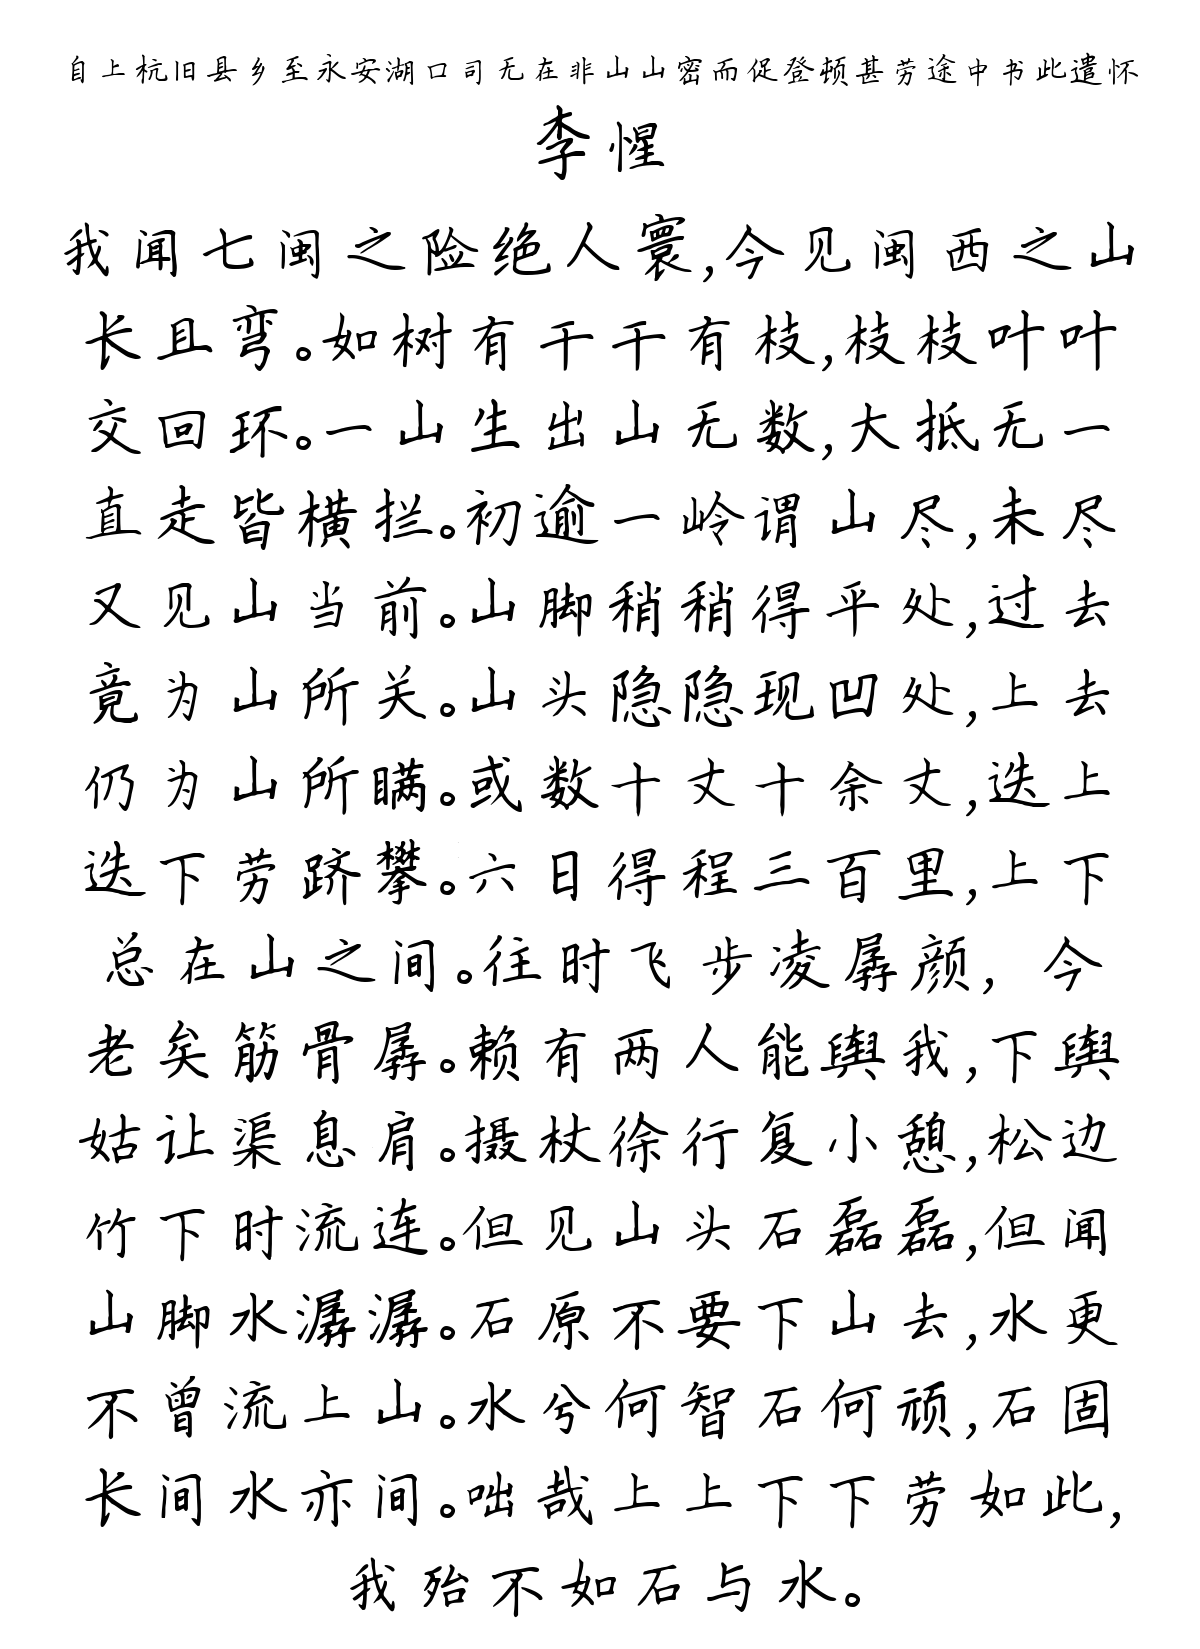 自上杭旧县乡至永安湖口司无在非山山密而促登顿甚劳途中书此遣怀
李惺
我闻七闽之险绝人寰,今见闽西之山
长且弯。如树有干干有枝,枝枝叶叶
交回环。一山生出山无数,大抵无一
直走皆横拦。初逾一岭谓山尽,未尽
又见山当前。山脚稍稍得平处,过去
竟为山所关。山头隐隐现凹处,上去
仍为山所瞒。或数十丈十余丈,迭上
迭下劳跻攀。六日得程三百里,上下
总在山之间。往时飞步凌孱颜,今
老矣筋骨孱。赖有两人能舆我,下舆
姑让渠息肩。摄杖徐行复小憩,松边
竹下时流连。但见山头石磊磊,但闻
山脚水潺潺。石原不要下山去,水更
不曾流上山。水兮何智石何顽,石固
长间水亦间。咄哉上上下下劳如此,
我殆不如石与水。